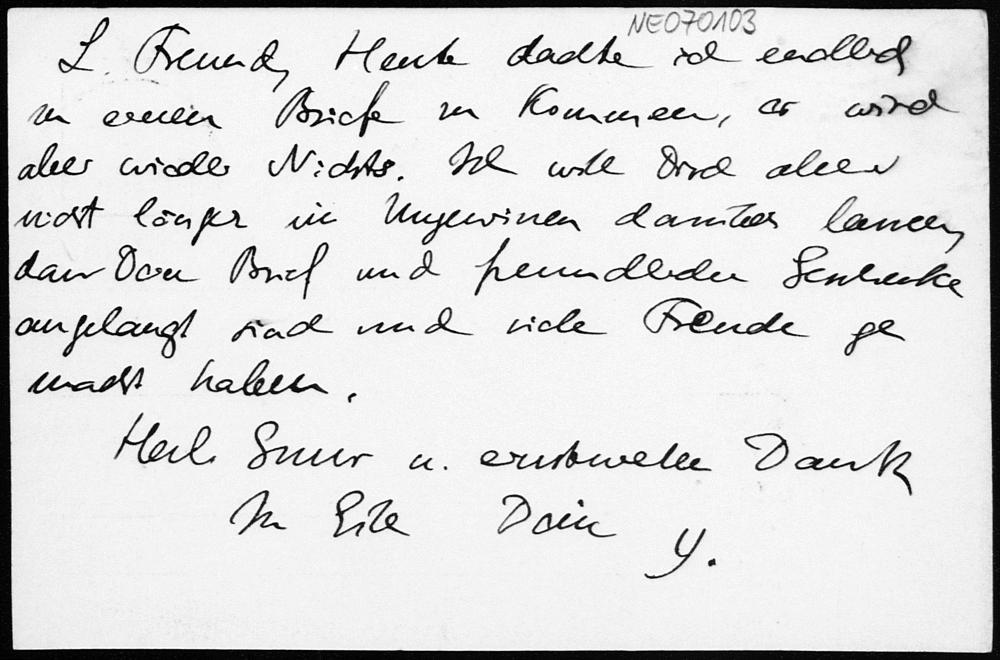 NE070103
L. Freund, Heute dachte ich endlich
zu einem Briefe zu Kommen, es wird
aber wieder Nichts. Ich will Dich aber
nicht länger im Ungewissen darüber lassen,
dass Dein Brief und freundlichen Geschenke
angelangt sind und viele Freude ge
macht haben.
Herzl. Gruss u. einstweilen Dank
In Eile Dein Y.